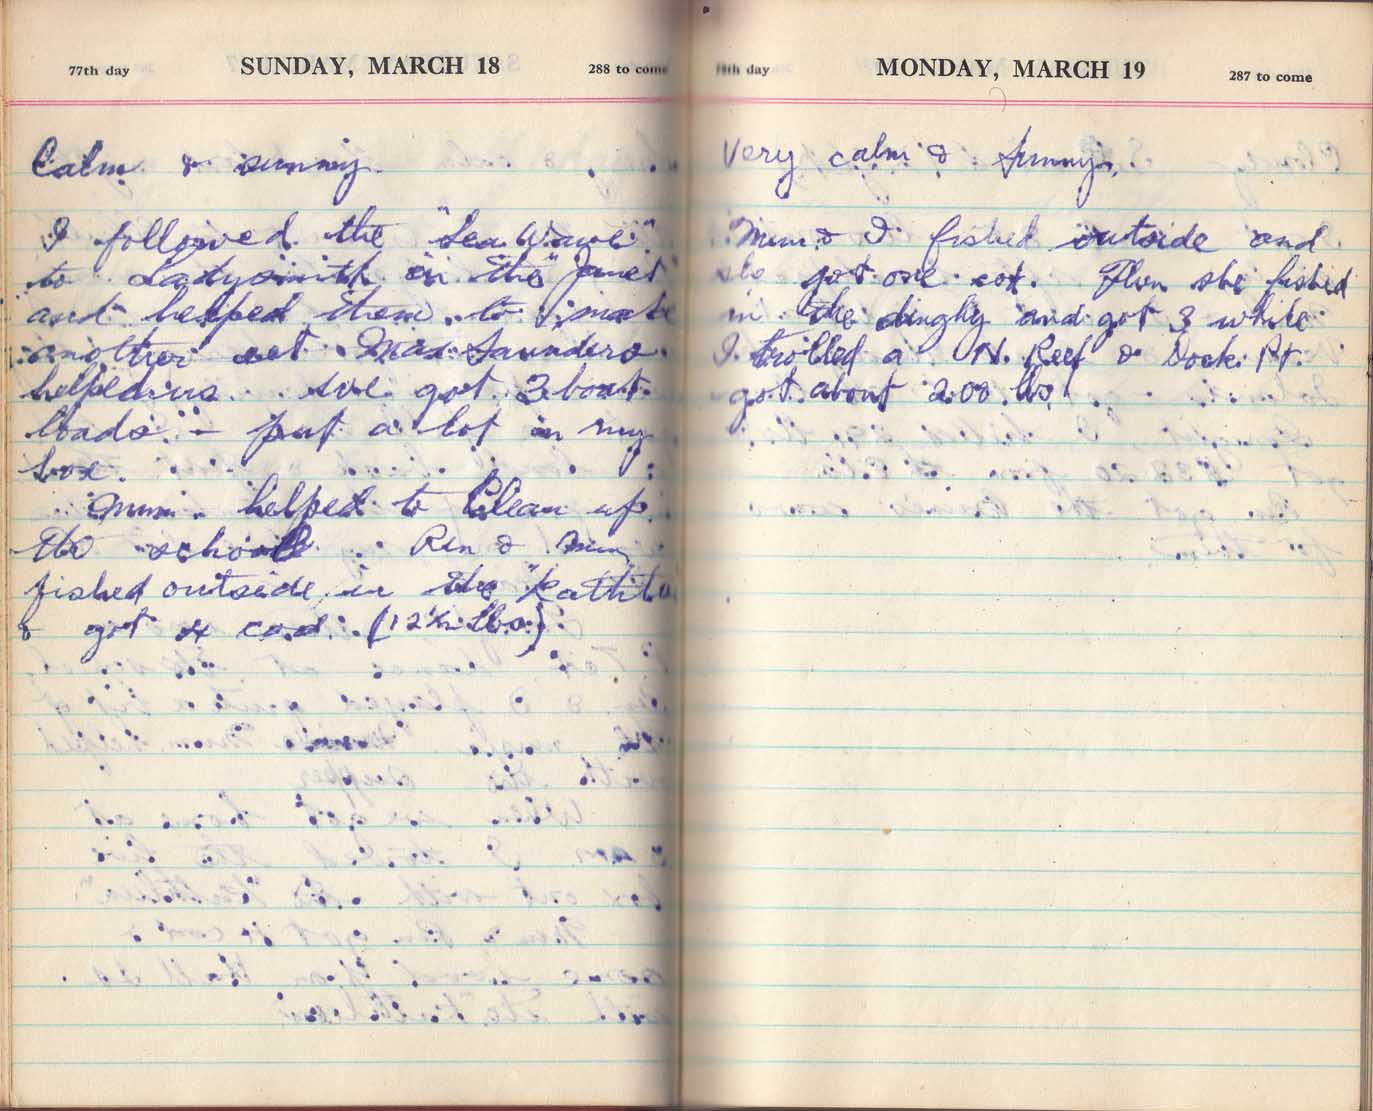 77th day SUNDAY, MARCH 18 288 to come
Calm & sunny.
I followed the "Sea Wave"
to Ladysmith in the "Janet"
and helped them to make
another set. Max Saunders
helped us. We got 3 boat
loads – put a lot in my
box.
Mum helped to Clean up
the school. Ren & Mum
fished outside in the "Kathlu
& got 4 cod. (12½ lbs.)
78th day MONDAY, MARCH 19 287 to come
Very calm & Sunny.
Mum & I fished outside and
she got one cod. Then she fished
in the dinghy and got 3 while
I trolled a N. Reef & Dock Pt.
got about 200 lbs!